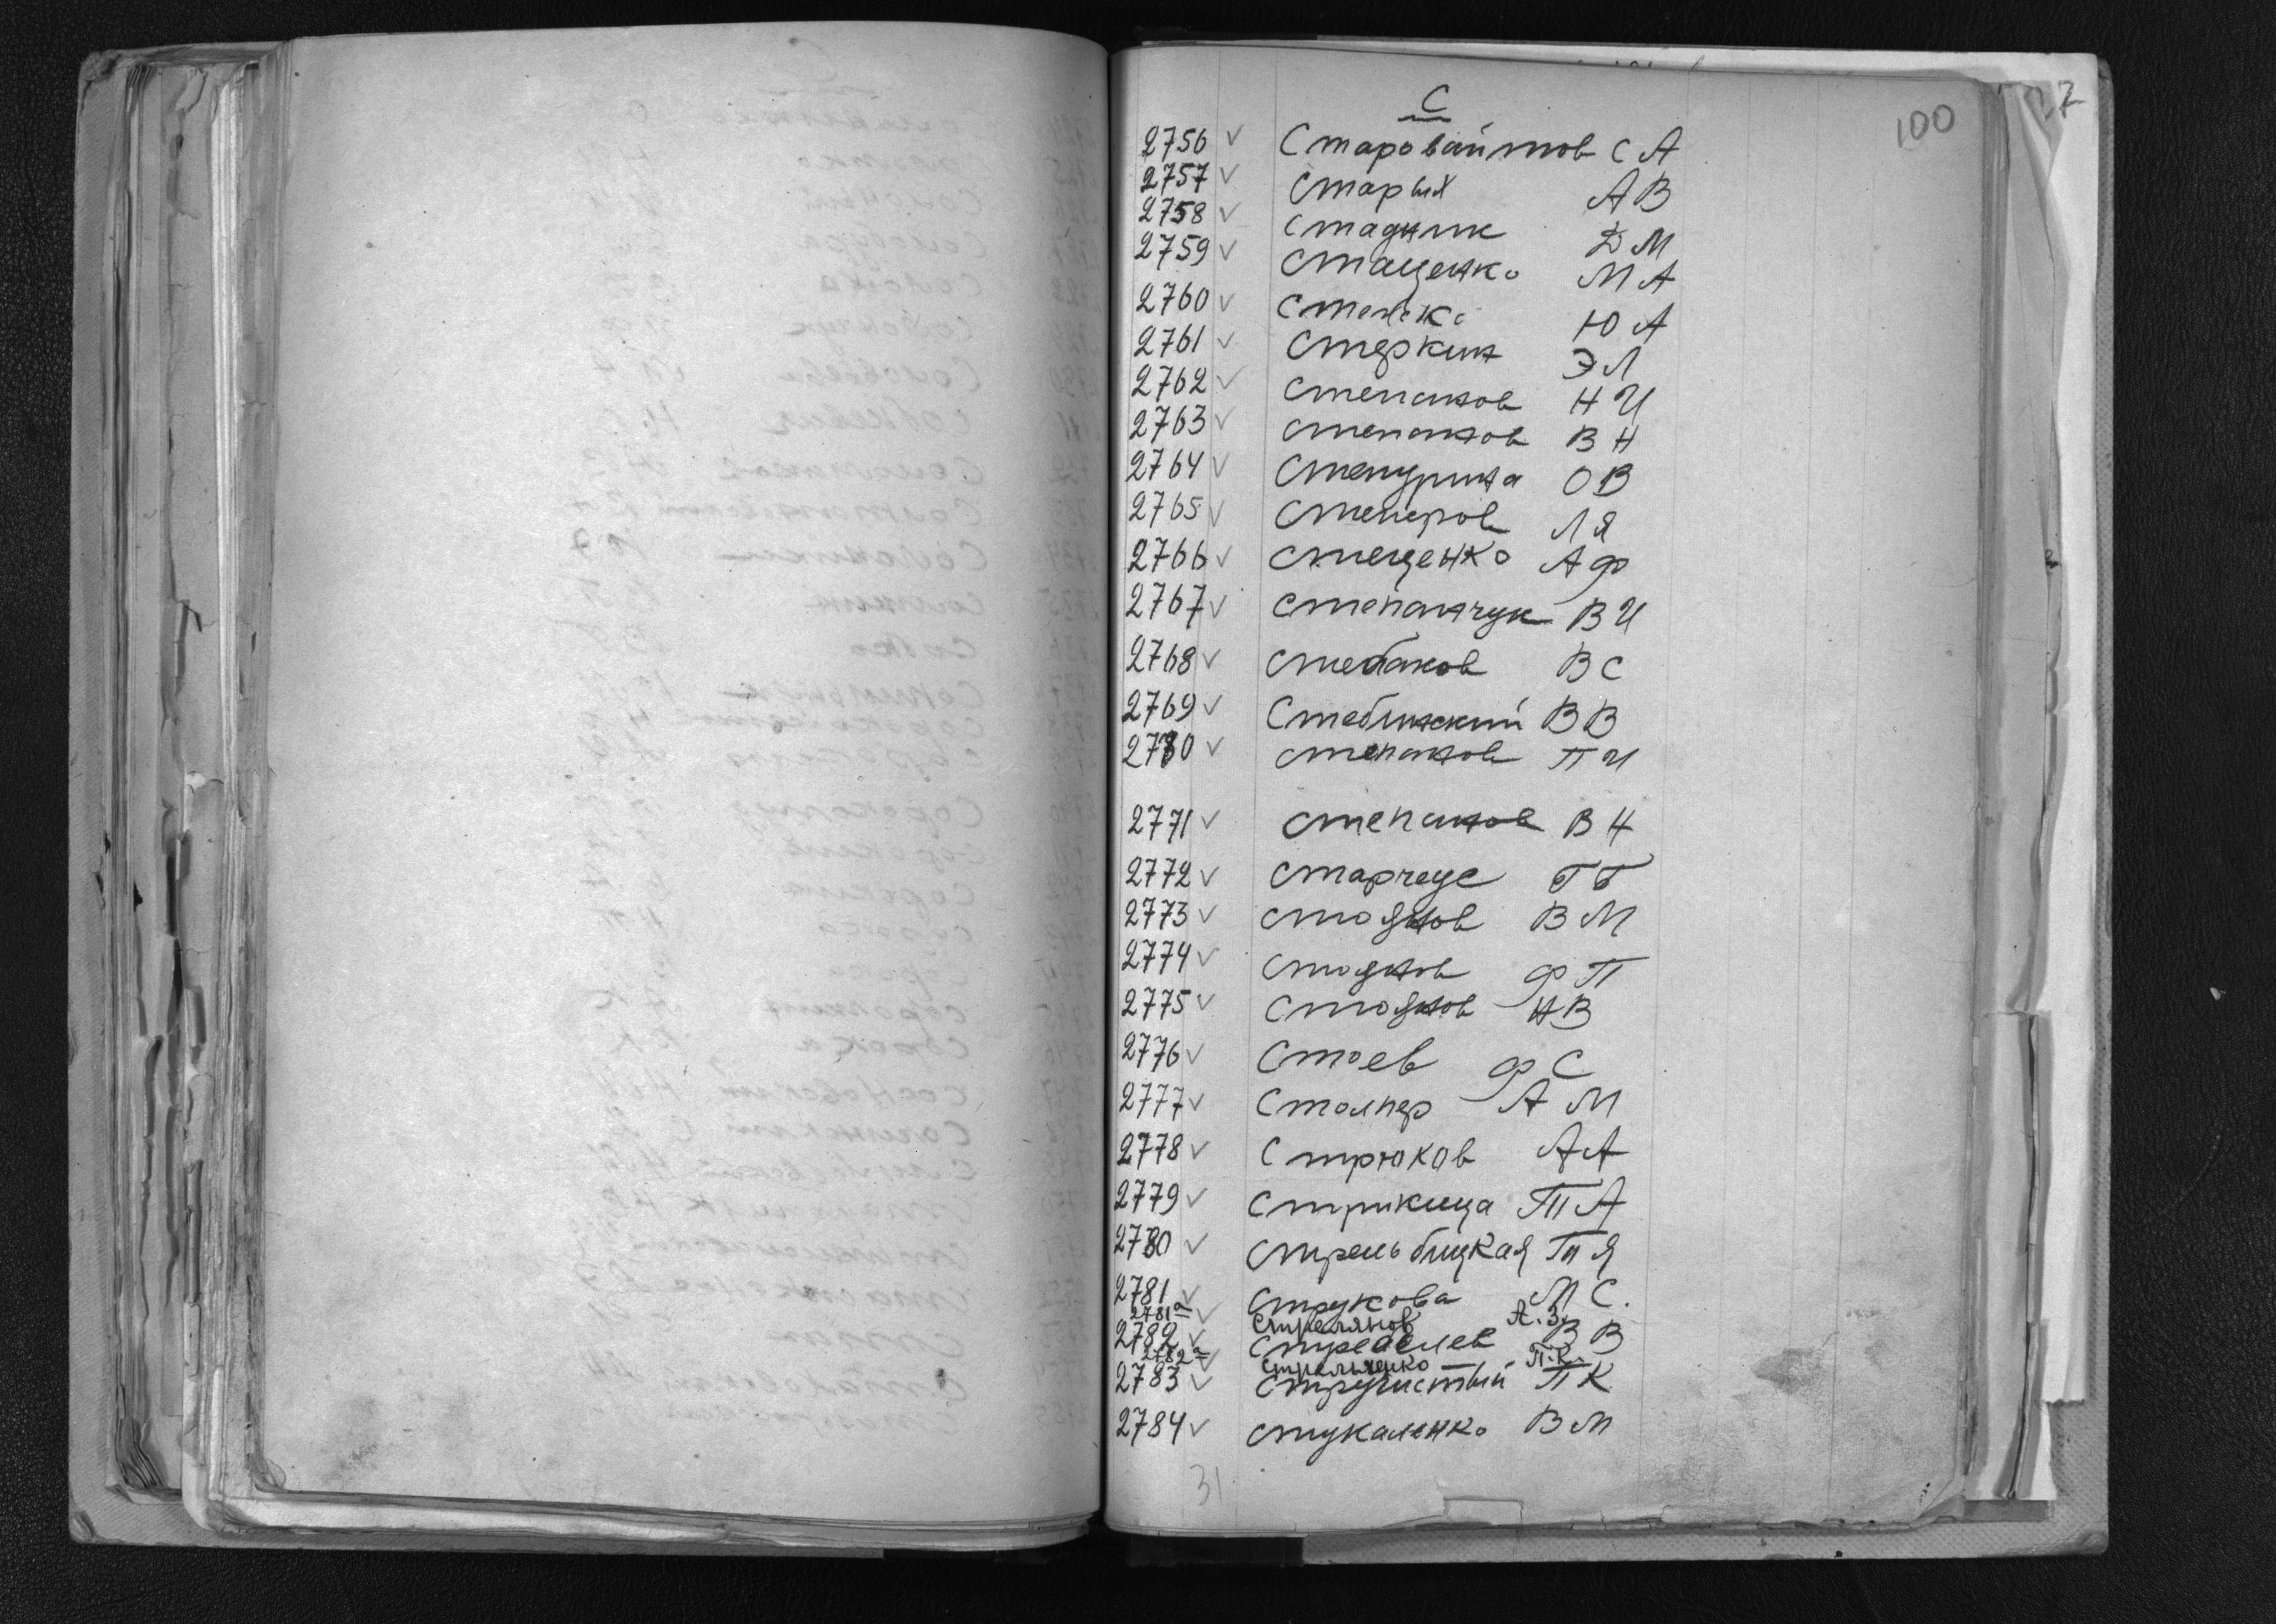 100
С
2756 ✓ Старовайтов С А
2757 ✓ Старых А В
2758 ✓ Стадник Д М
2759 ✓ Стаценко М А
2760 ✓ Ю А
2761 ✓ Стеркин Э Л
2762 ✓ Степанов Н И
2763 ✓ Степанов В Н
2764 ✓ Степурина О В
2765 ✓ Л Я
2766 ✓ Стеценко А Ф
2767 ✓ Степанчук В И
2768 ✓ Стебаков В С
2769 ✓ Стеблинский В В
2770 ✓ Степанов П И
2771 ✓ Степанов В Н
2772 ✓ Старчеус Г Г
2773 ✓ Стоянов В М
2774 ✓ Стоянов Ф П
2775 ✓ Стоянов Н В
2776 ✓ Стоев Ф С
2777 ✓ Столпер А М
2778 ✓ Стрюков А А
2779 ✓ Стрикица Т А
2780 ✓ Стрельбицкая Т Я
2781 ✓ Струкова М С.
2781а ✓ Стрелянов А. З.
2782 ✓ В В
2782а ✓ Стрельченко П. К.
2783 ✓ Стручистый П К
2784 ✓ Стукаленко В М
31